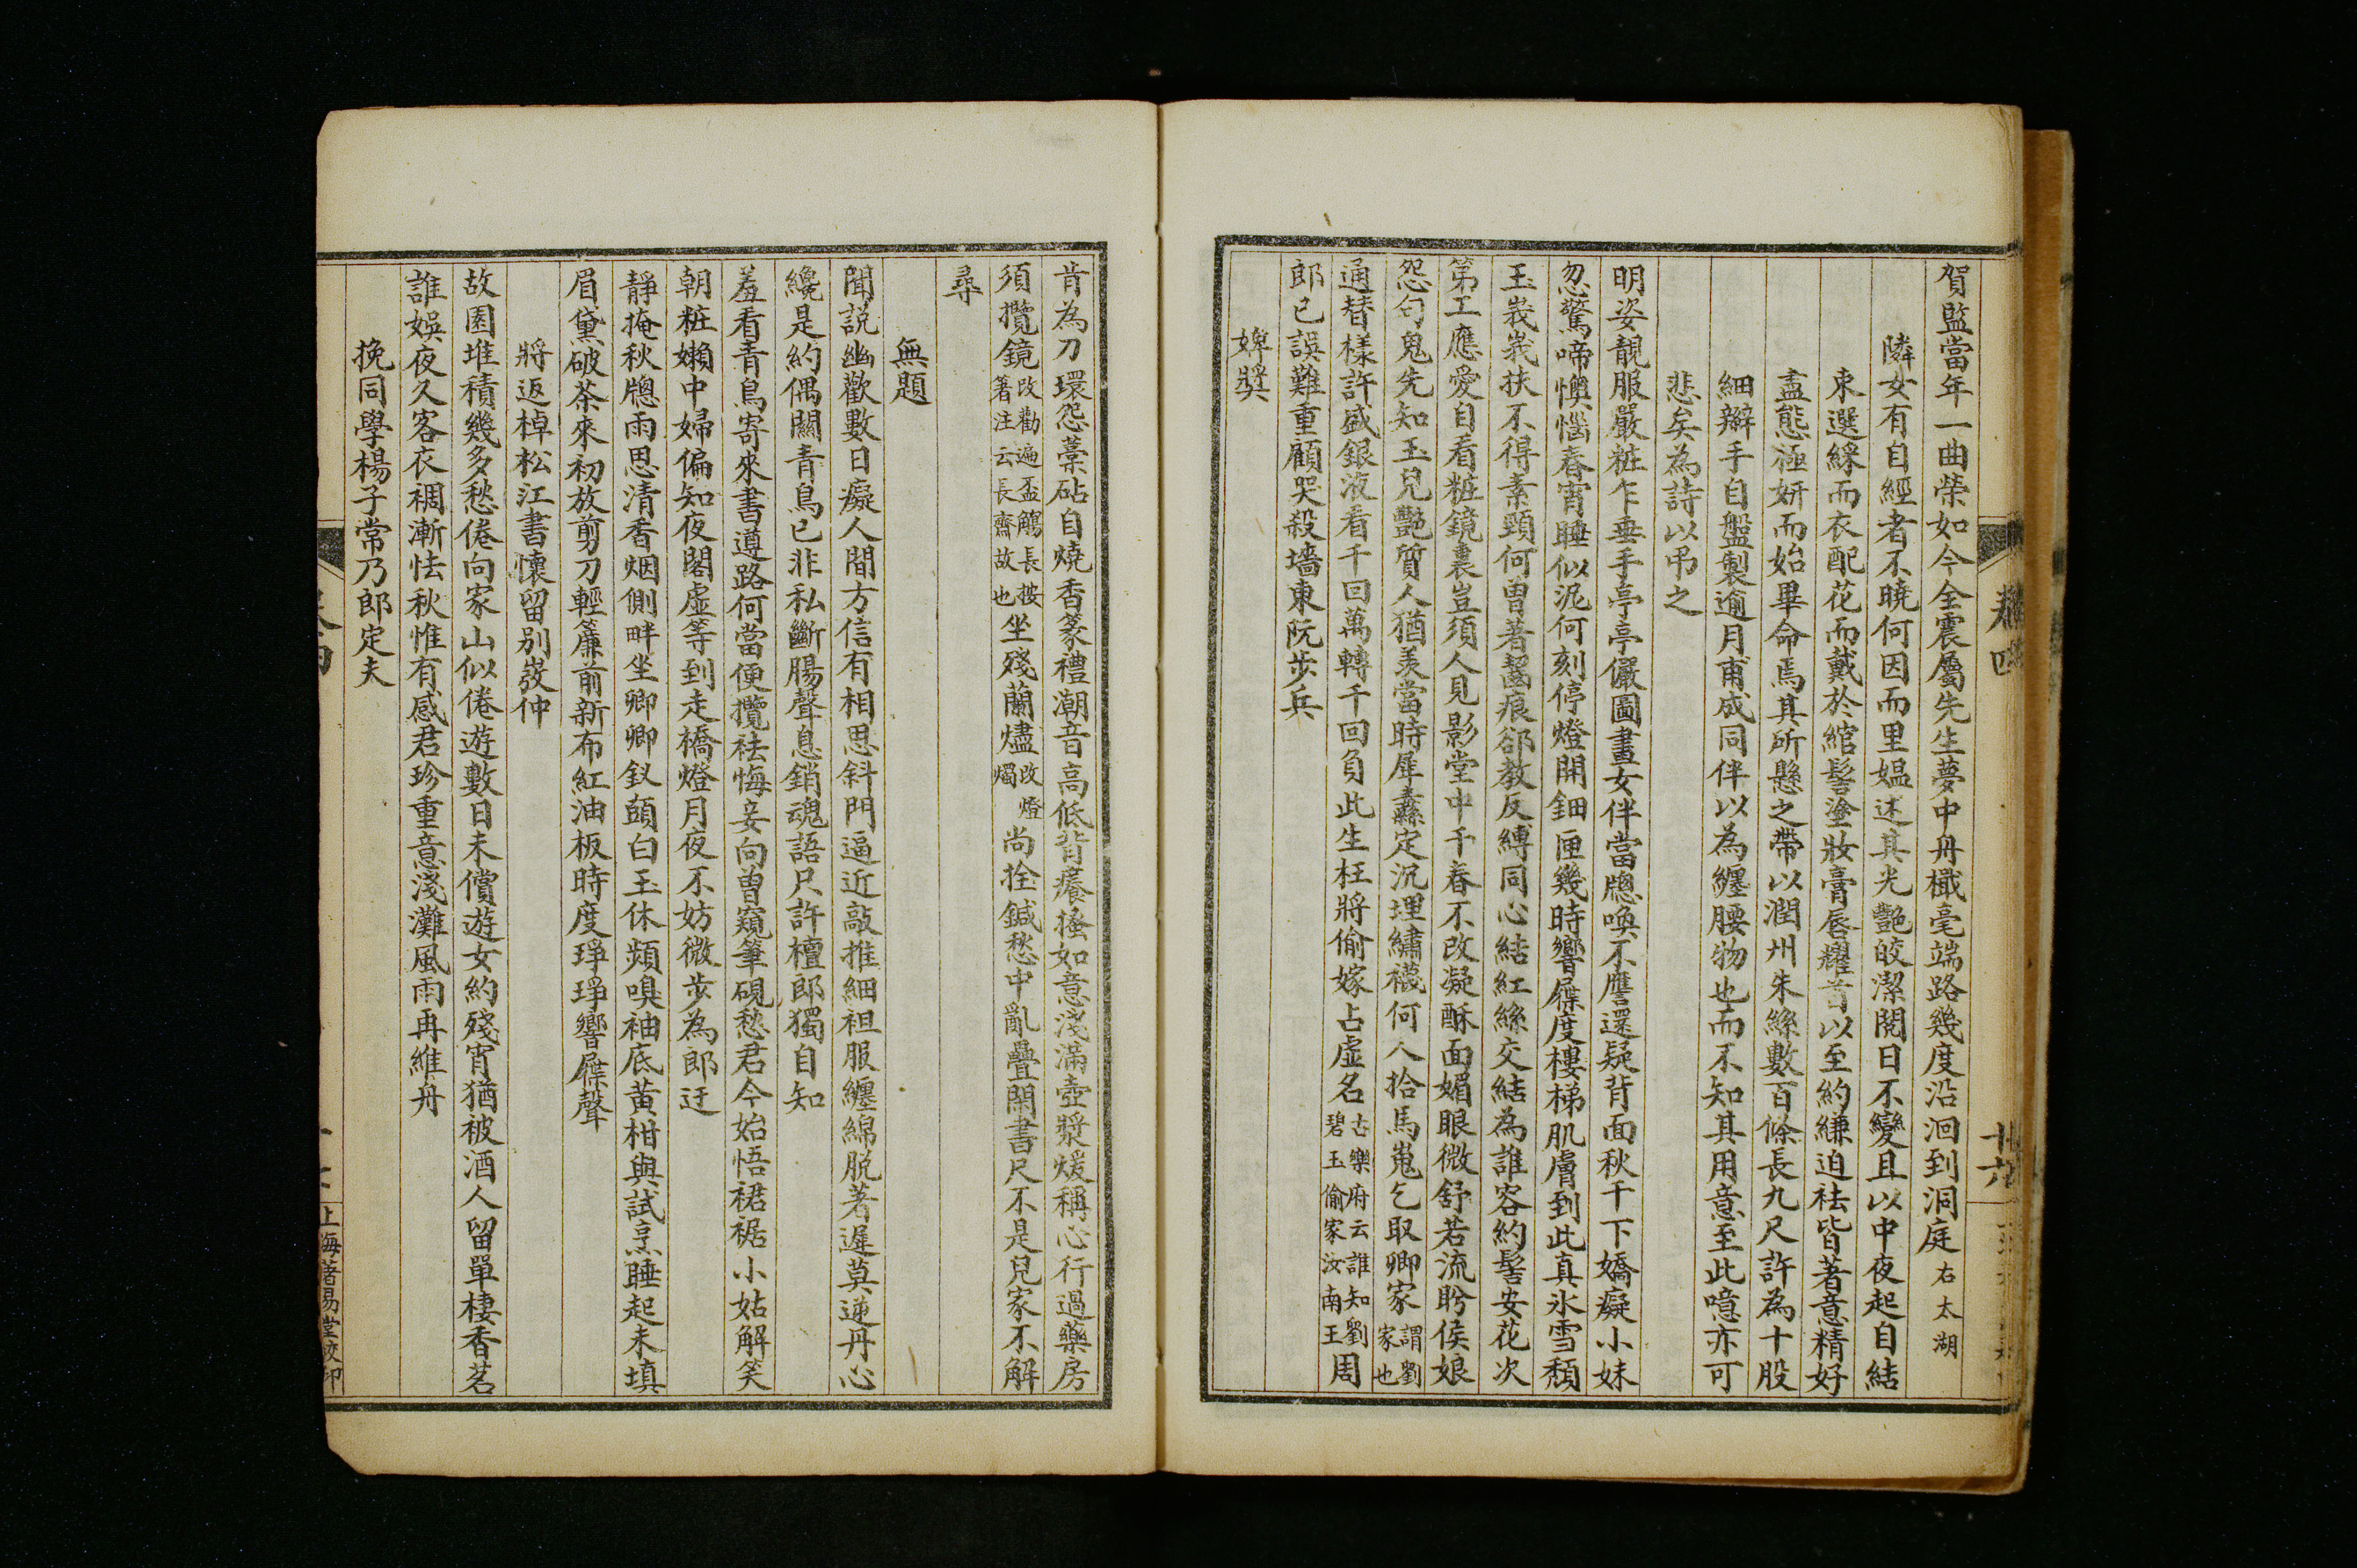 賀監當年一曲榮如今全震屬先生夢中丹檝毫端路幾度沿洄到洞庭右太湖
隣女有自經者不曉何因而里媪述其光艷皎潔閱日不變且以中夜起自結
束選綵而衣配花而戴於綰髻塗妝膏唇耀首以至約縑迫袪皆著意精好
盡態極妍而始畢命焉其所懸之帶以潤州朱絲數百條長九尺許為十股
細辮手自盤製逾月甫成同伴以為纏腰物也而不知其用意至此噫亦可
悲矣為詩以弔之
明姿靚服嚴粧乍垂手亭亭儼圖畫女伴當牕喚不譍還疑背面秋千下嬌癡小妹
忽驚啼懊惱春宵睡似泥何刻停燈開鈿匣幾時響屧度樓梯肌膚到此真氷雪頹
玉峩峩扶不得素頸何曽著齧痕郤教反縛同心結紅絲交結為誰容約髻安花次
第工應愛自看粧鏡裏豈須人見影堂中千春不改凝酥面媚眼微舒若流盼侯娘
怨句鬼先知玉兒艷質人猶羨當時犀纛定沉埋繡襪何人拾馬嵬乞取卿家謂劉家也
通替樣許盛銀液看千回萬轉千回負此生枉將偷嫁占虛名古樂府云誰知劉碧玉偷家汝南王周
郎已誤難重顧哭殺墻東阮步兵
婢獎
卷四
十六
肯為刀環怨藁砧自燒香篆禮潮音高低背癢搔如意淺滿壺漿煖稱心行過藥房
須攬鏡改勸遍盃觴長按箸注云長齋故也坐殘蘭燼改燈燭尚拴鍼愁中亂疊閑書尺不是兒家不解
尋
無題
聞説幽歡數日癡人間方信有相思斜門逼近敲推細袒服纏綿脱著遲莫逆丹心
纔是約偶關青鳥已非私斷腸聲息銷魂語只許檀郎獨自知
羞看青鳥寄來書遵路何當便攬袪悔妾向曽窺筆硯愁君今始悟裙裾小姑解笑
朝粧嬾中婦偏知夜閣虛等到走橋燈月夜不妨微步為郎迂
靜掩秋牕雨思清香烟側畔坐卿卿釵頭白玉休頻嗅袖底黃柑與試烹睡起未填
眉黛破茶來初放剪刀輕簾前新布紅油板時度琤琤響屧聲
將返棹松江書懷留别嵏仲
故園堆積幾多愁倦向家山似倦遊數日未償遊女約殘宵猶被酒人留單棲香茗
誰娛夜久客衣裯漸怯秋惟有感君珍重意淺灘風雨再維舟
挽同學楊子常乃郎定夫
上海著易堂校印